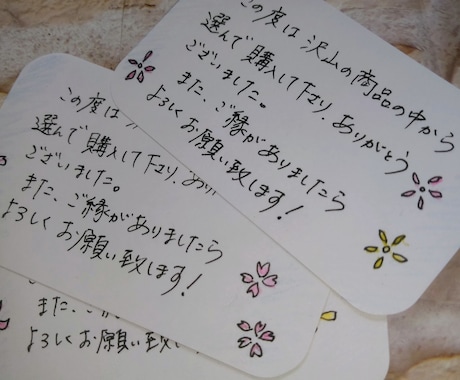 この度は沢山の商品の中から
選んで購入して下さり、ありがとう
ございました。
また、ご縁がありましたら
よろしくお願い致します!
この度は
選んで購入して下さり、あり
ございました。
また、ご縁がありましたら
よろしくお願い致します!
また、ご
よろしくお願い致し